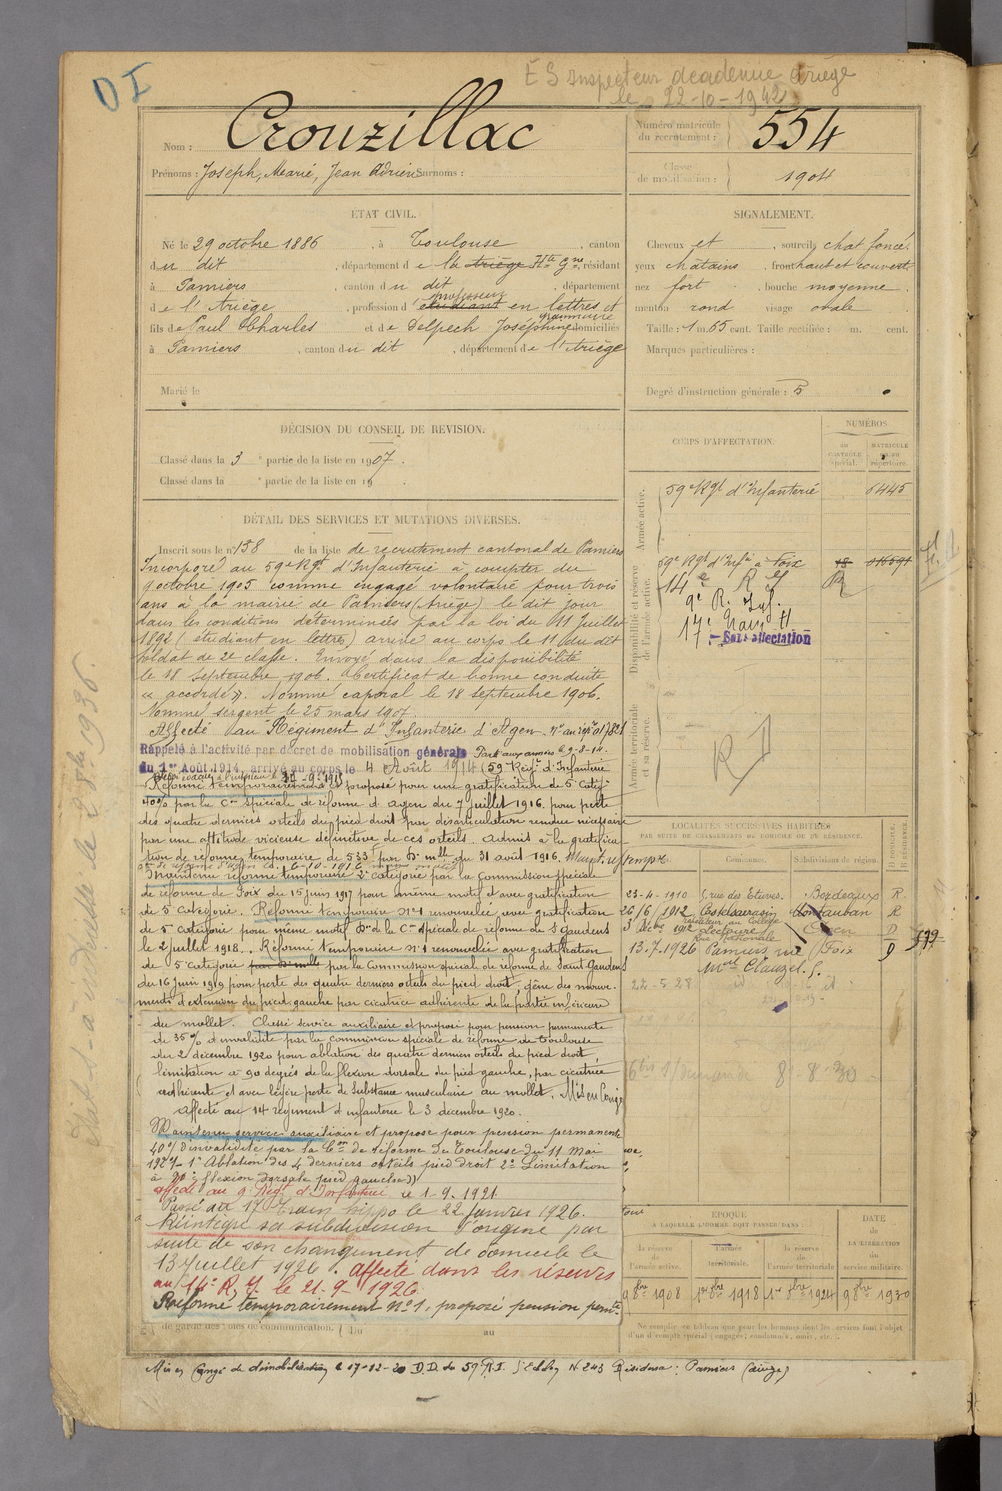 DI
E S Inspecteur d'academie Ariège
le 22-10-1942
Nom : Crouzillac
Prénoms : Joseph, Marie, Jean Adrien Surnoms :
Numéro matricule du recrutement : 554
Classe de mobilisation : 1904
ÉTAT CIVIL.
Né le 29 octobre 1886, à Toulouse, canton
du dit, département de la Ariège Hte Gne, résidant
à Pamiers, canton du dit, département
professeur
de l'Ariège, profession d'étudiant en lettres et
grammaire
fils de Paul Charles et de Delpech Joséphine domiciliés
à Pamiers, canton du dit, département de l'Ariège
Marié le
SIGNALEMENT.
Cheveux et, sourcils chat foncé.
yeux châtains, front haut et couvert
nez fort, bouche moyenne
menton rond visage ovale
Taille : 1 m. 65 cent. Taille rectifiée : m. cent.
Marques particulières :
Degré d'instruction générale : 5
DÉCISION DU CONSEIL DE REVISION.
Classé dans la 3e partie de la liste en 1907.
Classé dans la e partie de la liste en 19
CORPS D'AFFECTATION.
NUMÉROS
au CONTRÔLE spécial.
MATRICULE
répertoire.
Armée active.
59e Rgt d'Infanterie 6445
Disponibilité et réserve de l'armée active.
59e Rgt d'Infie à Foix
14e R I
9e R. Inf.
17e Train H
Sans affectation
Armée territoriale et sa réserve.
R D
DÉTAIL DES SERVICES ET MUTATIONS DIVERSES.
Inscrit sous le n° 138 de la liste de recrutement cantonal de Pamiers
Incorporé au 59e Rgt d'Infanterie à compter du
9 octobre 1905 comme engagé volontaire pour trois
ans à la mairie de Pamiers (Ariège) le dit jour
dans les conditions déterminées par la loi du 11 Juillet
1892 (étudiant en lettres) arrivé au corps le 11 du dit
Soldat de 2e classe. Envoyé dans la disponibilité
le 18 Septembre 1906. Certificat de bonne conduite
"accordé". Nommé caporal le 18 Septembre 1906.
Nommé sergent le 25 mars 1907
Affecté au Régiment d'Infanterie d'Agen
Rappelé à l'activité par décret de mobilisation générale Parti aux armées le 9-8-14.
du 1er Août 1914, arrivé au corps le 4 Août 1914 (59 Regt d'Infanterie
Réformé temporairement et proposé pour une gratification de 5 catég
40% par la Con spéciale de réforme d'Agen du 7 juillet 1916. pour perte
des quatre derniers orteils du pied droit par désarticulation rendue nécessaire
par une attitude vicieuse définitive de ces orteils. Admis à la gratifica-
tion de réforme temporaire de 533f par Don mlle du 31 août 1916.
Maintenu réforme temporaire 2e catégorie par la Commission spéciale
de réforme de Foix du 15 juin 1917 pour même motif avec gratification
de 5 catégorie. Réformé temporaire N°1 renouvelée avec gratification
de 5 catégorie pour même motif Don de la Con spéciale de réforme de St Gaudens
le 2 juillet 1918. Réformé temporaire N°1 renouvelée avec gratification
de 5e catégorie par Don mlle par la Commission spéciale de réforme de Saint-Gaudens
du 16 juin 1919 pour perte des quatre derniers orteils du pied droit, gêne des mouve-
ments d'extension du pied gauche par cicatrice adhérente de la partie inférieure
du mollet. Classé service auxiliaire et proposé pour pension permanente
de 35% d'invalidité par la commission spéciale de réforme de Toulouse
du 2 décembre 1920 pour ablation des quatre derniers orteils du pied droit,
limitation à 90 degrés de la flexion dorsale du pied gauche, par cicatrice
adhérente et avec légère perte de substance musculaire au mollet. Mis en Congé
Affecté au 14 régiment d'infanterie le 3 décembre 1920.
Maintenu service auxiliaire et proposé pour pension permanente
40% d'invalidité par la Con de réforme de Toulouse du 11 Mai
1921 - 1° Ablation des 4 derniers orteils pied droit 2° Limitation
à 90° flexion dorsale pied gauche
affecté au 9 Regt d'Infanterie le 1-9-1921
Passé au 17 Train hippo le 22 Janvier 1926.
Réintégré sa subdivision d'origine par
suite de son changement de domicile le
13 Juillet 1926. Affecté dans les réserves
au 14e R.I. le 21-9-1926
Réformé temporairement N°1, proposé pension permte
de garde des voies de communication. Du au
LOCALITÉS SUCCESSIVES HABITÉES
PAR SUITE DE CHANGEMENTS DE DOMICILE OU DE RÉSIDENCE.
Communes. Subdivisions de région. D DOMICILE. R RÉSIDENCE.
23-4-1910 rue des Etuves. Bordeaux R
26/6/1912 Castelsarrasin Montauban R
3 Xbre 1912 Lectoure Agen D
rue Nationale
13.7.1926 Pamiers rue Foix D
Mal Clauzel 9.
22-5-28
8-8-30
599
EPOQUE
À LAQUELLE L'HOMME DOIT PASSER DANS :
la réserve de l'armée active.
l'armée territoriale.
la réserve de l'armée territoriale
DATE de LA LIBÉRATION du service militaire.
9 8bre 1908 1er 8bre 1918 1er 8bre 1924 9 8bre 1930
Ne remplir ce tableau que pour les hommes dont les services font l'objet
d'un décompte spécial (engagés, condamnés, omis, etc.).
Mis en Congé de démobilisation le 17-12-20 D.D. du 59 R.I. N° 243 Résidence : Pamiers (Ariège)